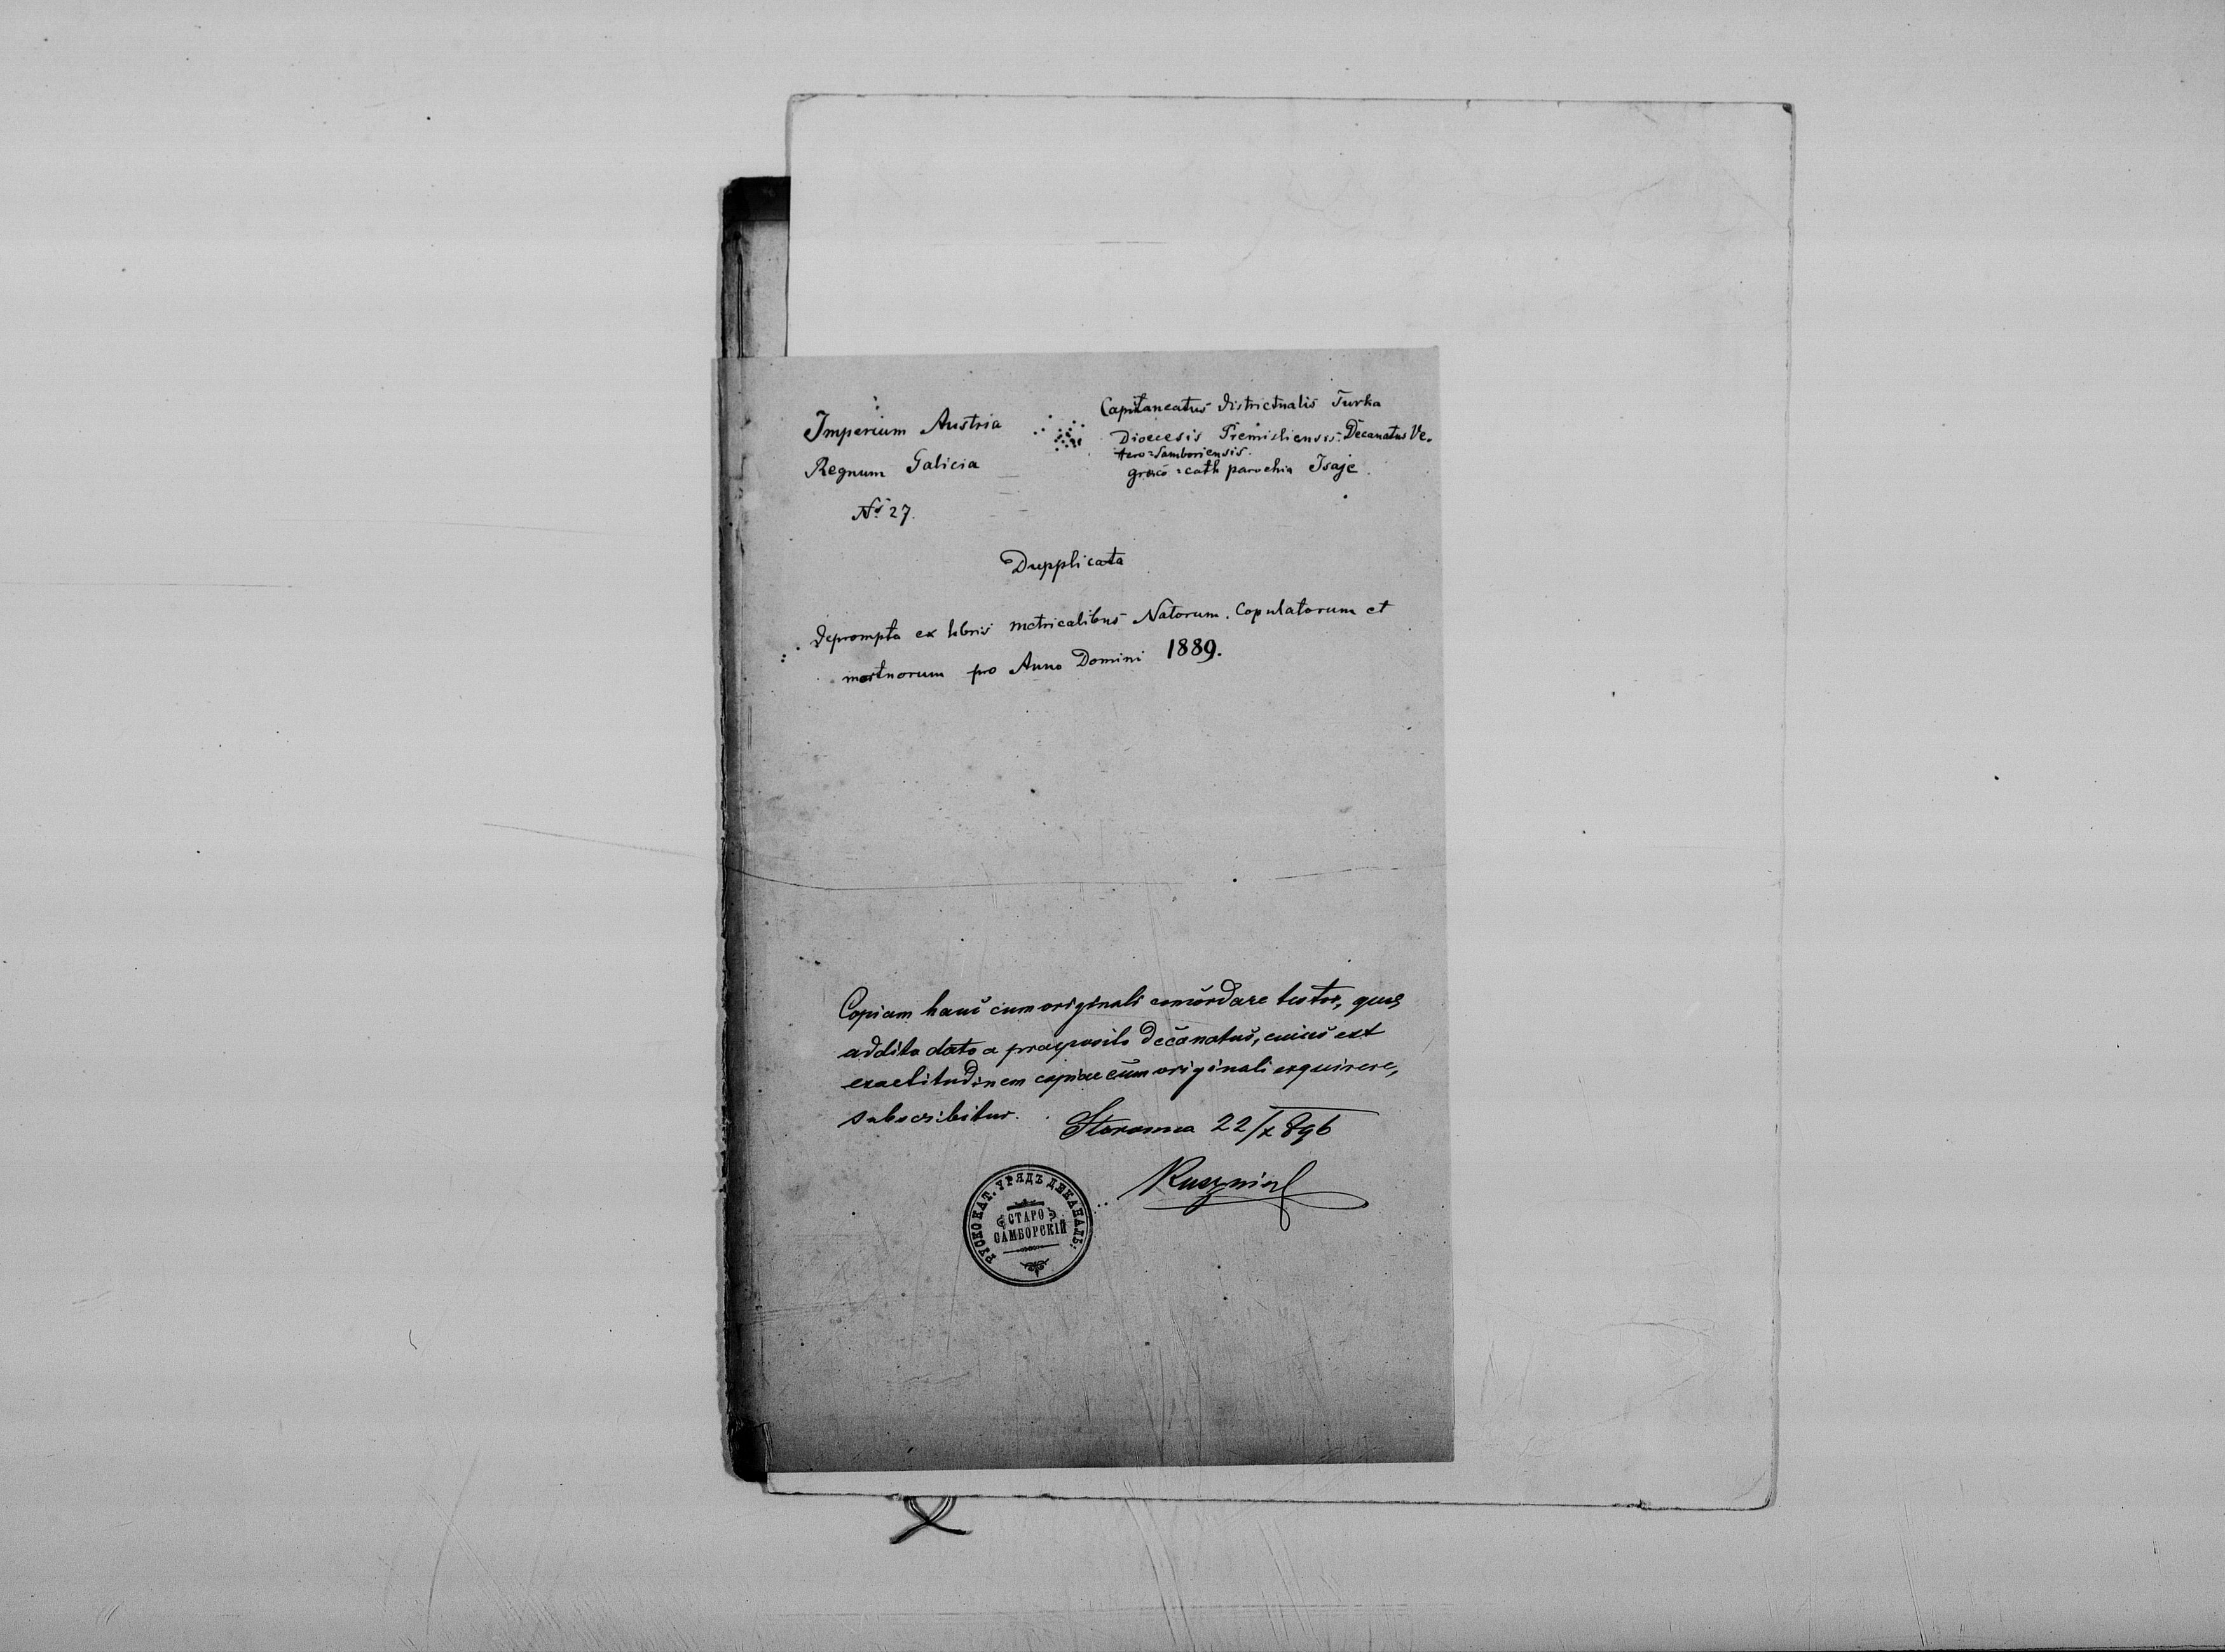 Imperium Austria
Regnum Galicia
No 27.
Capitaneatus districtualis Turka
Dioecesis Premisliensis. Decanatus Ve-
tero=Samboriensis.
graeco=cath parochia Isaje.
Dupplicata
deprompta ex libris metricalibus Natorum, Copulatorum et
mortuorum pro Anno Domini 1889.
Copiam hanc cum originali concordare testor, quae
addito dato a praeposito decanatus, cuius est
exactitudinem copiae cum originali exquirere,
subscribitur.
22/X 896
РУСКО КАТ. УРЯДЪ ДЕКАНАЛЬ:
СТАРО
САМБОРСКІЙ